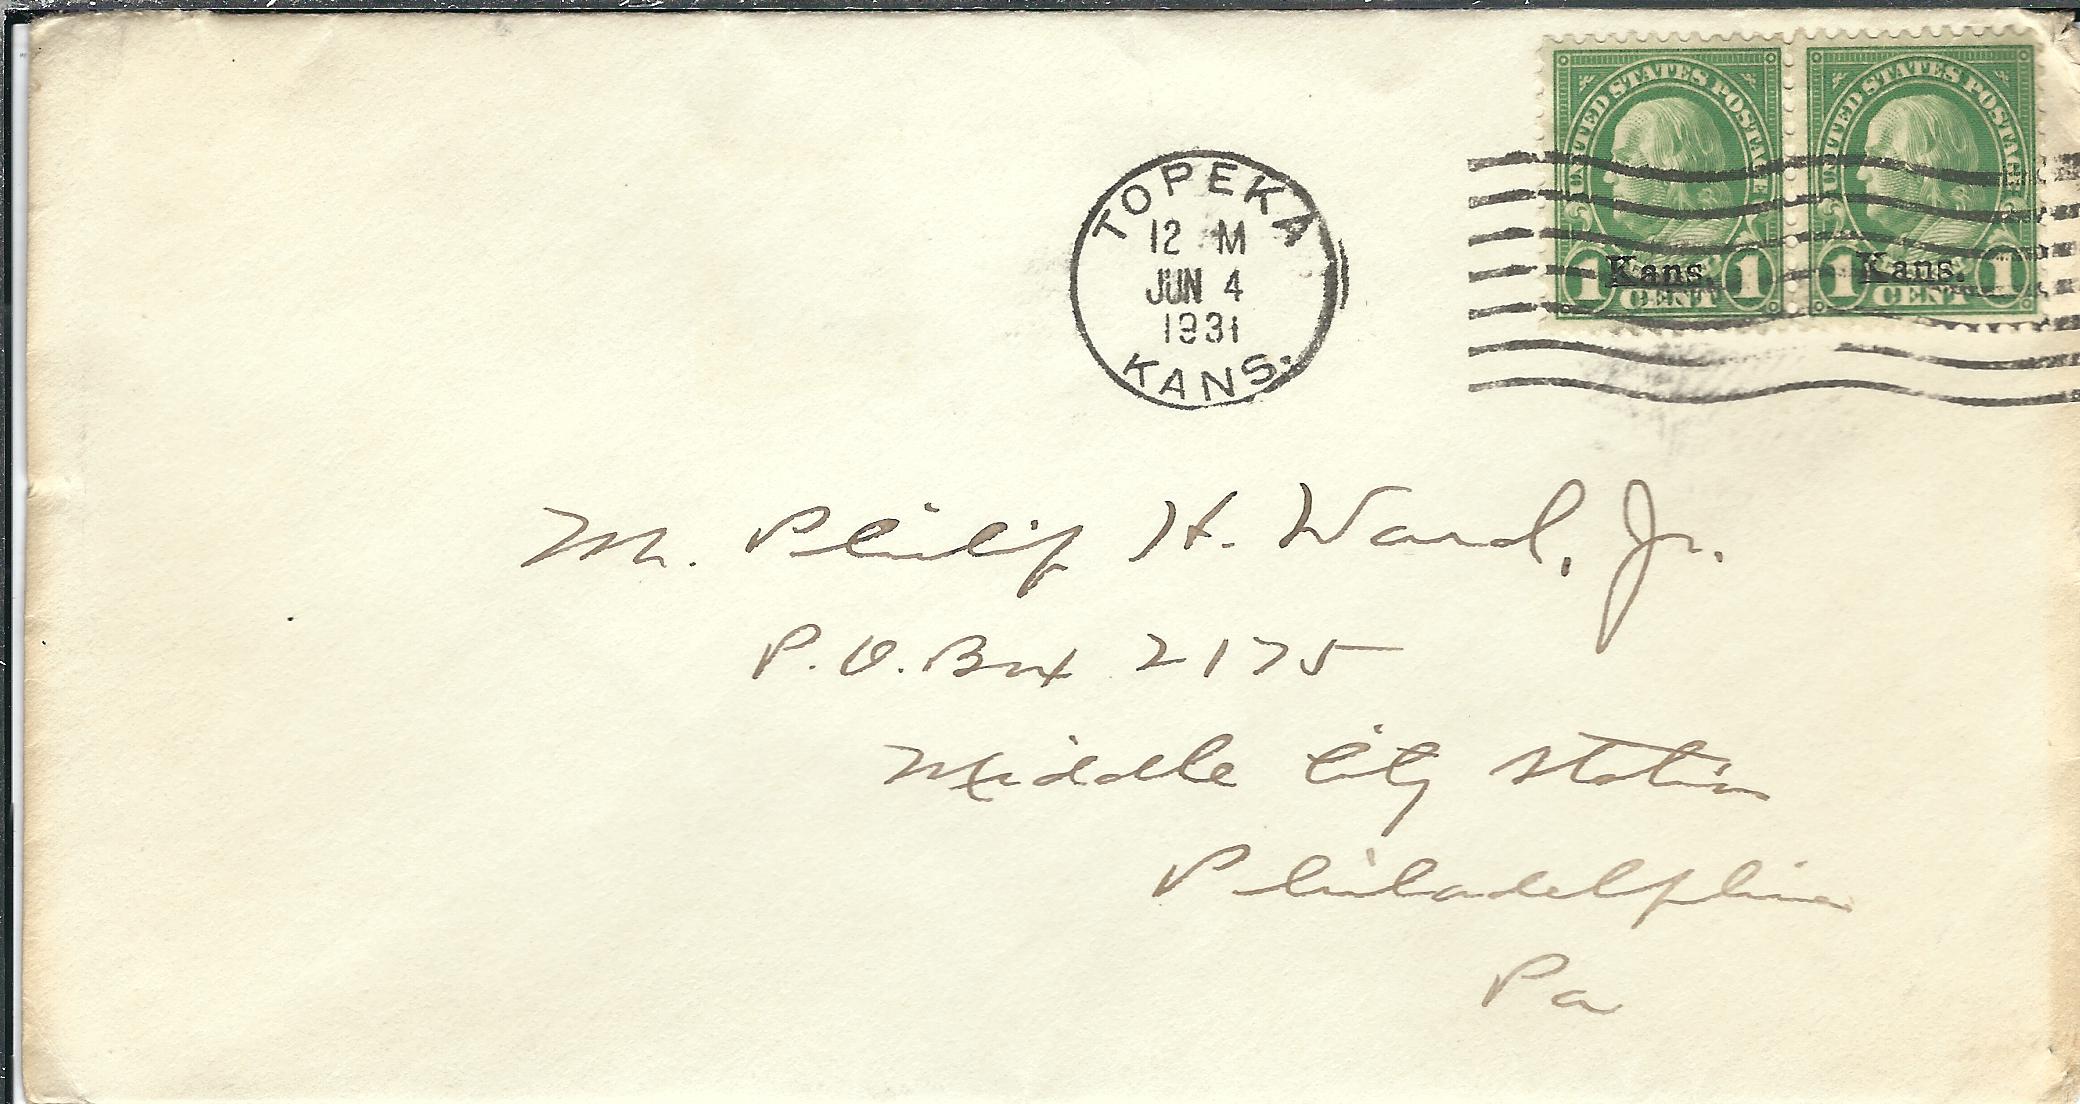 UNITED STATES POSTAGE
UNITED STATES POSTAGE
TOPEKA
12 M
JUN 4
1931
KANS.
1 Kans. 1
CENT
1 Kans. 1
CENT
M. Philip H. Ward, Jr.
P.O. Box 2175
Middle City Station
Philadelphia
Pa